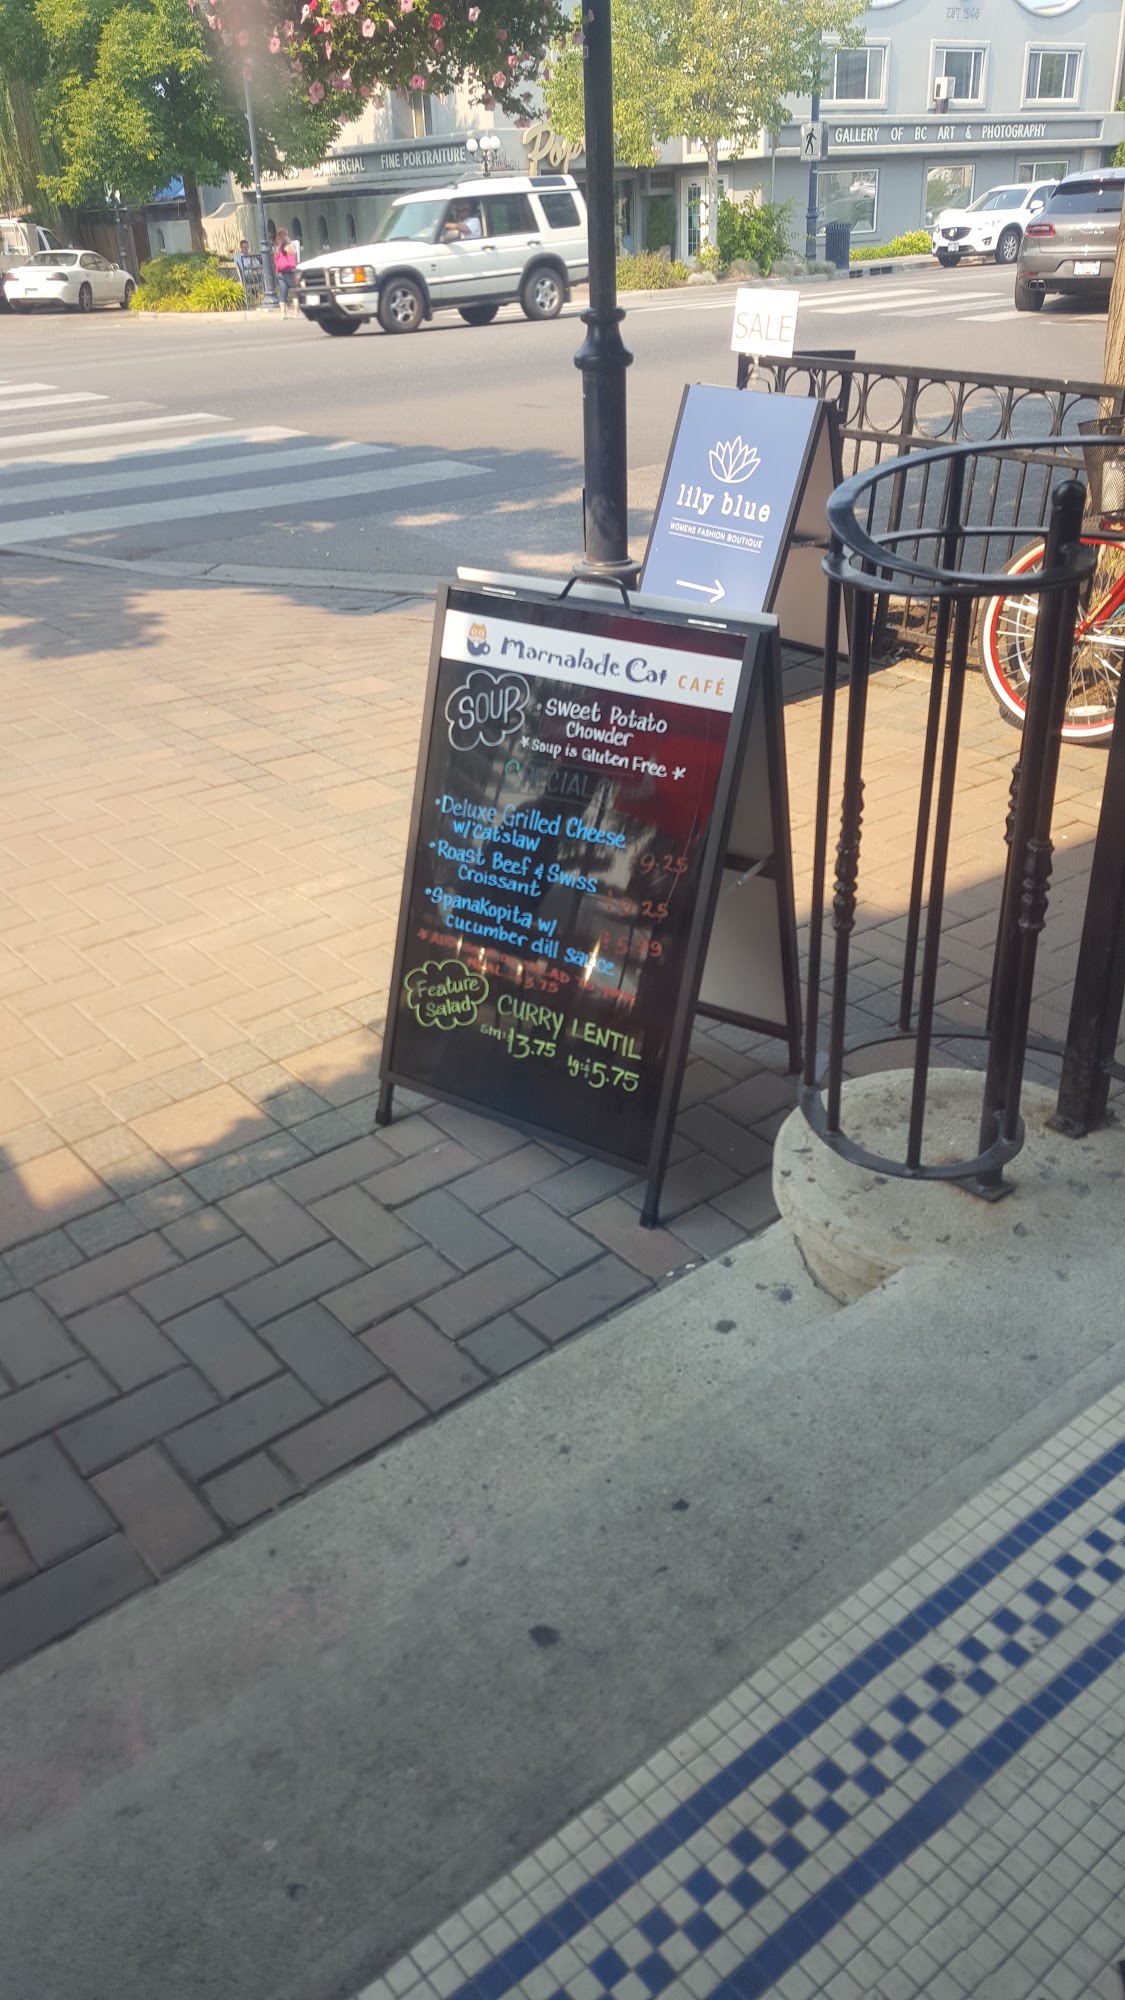 EST. 1946
COMMERCIAL FINE PORTRAITURE
Pop
GALLERY OF BC ART & PHOTOGRAPHY
SALE
lily blue
WOMENS FASHION BOUTIQUE
Marmalade Cat CAFÉ
SOUP
• Sweet Potato
Chowder
* Soup is Gluten Free *
SPECIALS
• Deluxe Grilled Cheese
w/ catslaw 9.25
• Roast Beef & Swiss
Croissant 9.25
• Spanakopita w/
cucumber dill sauce $5.99
* ADD SOUP OR SALAD TO YOUR
MEAL $3.75
Feature
Salad
CURRY LENTIL
sm: $3.75 lg: $5.75